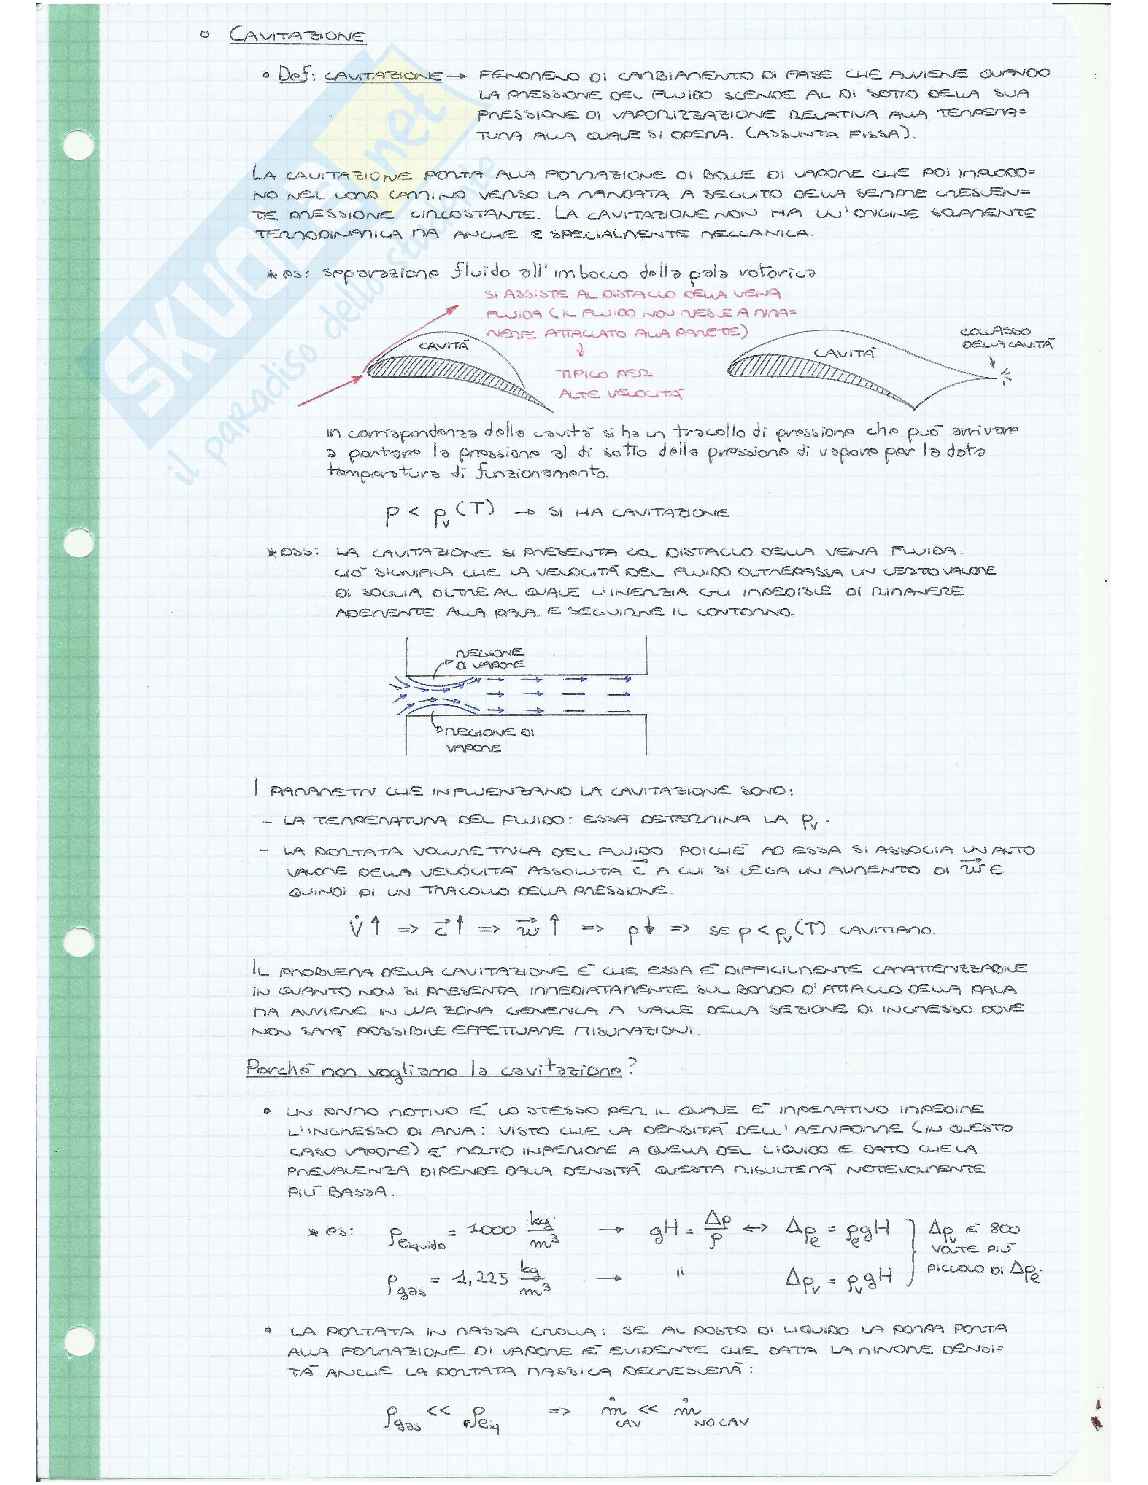 ° CAVITAZIONE
• Def: CAVITAZIONE → FENOMENO DI CAMBIAMENTO DI FASE CHE AVVIENE QUANDO
LA PRESSIONE DEL FLUIDO SCENDE AL DI SOTTO DELLA SUA
PRESSIONE DI VAPORIZZAZIONE RELATIVA ALLA TEMPERA=
TURA ALLA QUALE SI OPERA. (ASSUNTA FISSA).
LA CAVITAZIONE PORTA ALLA FORMAZIONE DI BOLLE DI VAPORE CHE POI IMPLODO=
NO NEL LORO CAMMINO VERSO LA MANDATA A SEGUITO DELLA SEMPRE CRESCEN=
TE PRESSIONE CIRCOSTANTE. LA CAVITAZIONE NON HA UN'ORIGINE SOLAMENTE
TERMODINAMICA MA ANCHE E SPECIALMENTE MECCANICA.
* es: separazione fluido all'imbocco della pala rotorica
SI ASSISTE AL DISTACCO DELLA VENA
FLUIDA (IL FLUIDO NON RIESCE A RIMA=
NERE ATTACCATO ALLA PARETE)
↓
TIPICO PER
ALTE VELOCITÀ
CAVITÀ
CAVITÀ
COLLASSO
DELLA CAVITÀ
in corrispondenza della cavità si ha un tracollo di pressione che può arrivare
a portare la pressione al di sotto della pressione di vapore per la data
temperatura di funzionamento.
p < pv(T) → SI HA CAVITAZIONE
* oss: LA CAVITAZIONE SI PRESENTA COL DISTACCO DELLA VENA FLUIDA.
CIÒ SIGNIFICA CHE LA VELOCITÀ DEL FLUIDO OLTREPASSA UN CERTO VALORE
DI SOGLIA OLTRE AL QUALE L'INERZIA GLI IMPEDISCE DI RIMANERE
ADERENTE ALLA PALA E SEGUIRNE IL CONTORNO.
REGIONE
DI VAPORE
REGIONE DI
VAPORE
I PARAMETRI CHE INFLUENZANO LA CAVITAZIONE SONO:
– LA TEMPERATURA DEL FLUIDO: ESSA DETERMINA LA pv.
– LA PORTATA VOLUMETRICA DEL FLUIDO POICHÉ AD ESSA SI ASSOCIA UN ALTO
VALORE DELLA VELOCITÀ ASSOLUTA c⃗ A CUI SI LEGA UN AUMENTO DI w⃗ E
QUINDI DI UN TRACOLLO DELLA PRESSIONE.
V̇↑ => c⃗↑ => w⃗↑ => p↓ => SE p<pv(T) CAVITIAMO.
IL PROBLEMA DELLA CAVITAZIONE È CHE ESSA È DIFFICILMENTE CARATTERIZZABILE
IN QUANTO NON SI PRESENTA IMMEDIATAMENTE SUL BORDO D'ATTACCO DELLA PALA
MA AVVIENE IN UNA ZONA GENERICA A VALLE DELLA SEZIONE DI INGRESSO DOVE
NON SARÀ POSSIBILE EFFETTUARE MISURAZIONI.
Perché non vogliamo la cavitazione?
• UN PRIMO MOTIVO È LO STESSO PER IL QUALE È IMPERATIVO IMPEDIRE
L'INGRESSO DI ARIA: VISTO CHE LA DENSITÀ DELL'AERIFORME (IN QUESTO
CASO VAPORE) È MOLTO INFERIORE A QUELLA DEL LIQUIDO E DATO CHE LA
PREVALENZA DIPENDE DALLA DENSITÀ QUESTA RISULTERÀ NOTEVOLMENTE
PIÙ BASSA.
* es: ρliquido = 1000 kg/m³ → gH = Δp/ρ ↔ Δpe = ρegH } Δpv È 800
VOLTE PIÙ
PICCOLO DI Δpe.
ρgas = 1,225 kg/m³ → " Δpv = ρvgH
• LA PORTATA IN MASSA CROLLA: SE AL POSTO DI LIQUIDO LA POMPA PORTA
ALLA FORMAZIONE DI VAPORE È EVIDENTE CHE DATA LA MINORE DENSI=
TÀ ANCHE LA PORTATA MASSICA DECRESCERÀ:
ρgas << ρliq => ṁCAV << ṁNO CAV
SKUOLA.net
il paradiso dello studente